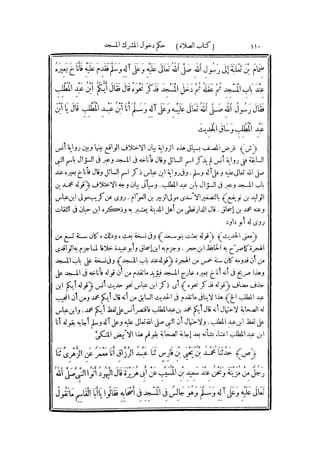 ١١٠ (كتاب الصلاة) حكم دخول المشرك المسجد
ضِمَامَ بْنَ ثَعْلَبَةَ إِلَى رَسُولِ اللهِ صَلَّى اللهُ تَعَالَى عَلَيْهِ وَعَلَى آلِهِ وَسَلَّمَ فَقَدِمَ عَلَيْهِ فَأَنَاخَ بَعِيرَهُ
عِنْدَ بَابِ الْمَسْجِدِ ثُمَّ عَقَلَهُ ثُمَّ دَخَلَ الْمَسْجِدَ فَذَكَرَ نَحْوَهُ قَالَ فَقَالَ أَيُّكُمُ ابْنُ عَبْدِ الْمُطَّلِبِ
فَقَالَ رَسُولُ اللهِ صَلَّى اللهُ تَعَالَى عَلَيْهِ وَعَلَى آلِهِ وَسَلَّمَ أَنَا ابْنُ عَبْدِ الْمُطَّلِبِ قَالَ يَا ابْنَ
عَبْدِ الْمُطَّلِبِ وَسَاقَ الْحَدِيثَ
(ش) غرض المصنف بسياق هذه الرواية بيان الاختلاف الواقع بينها وبين رواية أنس
السابقة فني رواية أنس لم يذكر اسم السائل وقال فأناخه في المسجد وعبر في السؤال باسم النبي
صلى الله تعالى عليه وعلى آله وسلم. وفي رواية ابن عباس ذكر اسم السائل وقال فأناخ بعيره عند
باب المسجد وعبر في السؤال بابن عبد المطلب. وسيأتي بيان وجه الاختلاف (قوله محمد بن
الوليد بن نويفع) بالتصغير الأسدى مولى الزبير بن العوام. روى عن كريب مولى ابن عباس
وعنه محمد بن إسحاق. قال الدارقطنى من أهل المدينة يعتبر به وذكره ابن حبان في الثقات
روى له أبو داود
(معنى الحديث) (قوله بعثت بنو سعد) وفي نسخة بعث وذلك كان سنة تسع من
الهجرة كما صرح به الحافظ ابن حجر. وجزم به ابن إسحاق وأبو عبيدة خلافا لما جزم به الواقدى
من أن قدومه كان سنة خمس من الهجرة (قوله عند باب المسجد) وفي نسخة على باب المسجد
وهذا صريح في أنه أناخ بعيره خارج المسجد فيؤيد ما تقدم من أن قوله فأناخه في المسجد على
حذف مضاف (قوله فذكر نحوه) أى ذكر ابن عباس نحو حديث أنس (قوله أيكم ابن
عبد المطلب الخ) هذا لاينافى ما تقدم في الحديث السابق من أنه قال أيكم محمد ومن أن المجيب
له الصحابة لاحتمال أنه قال أيكم محمد بن عبد المطلب فاقتصر أنس على لفظ أيكم محمد. وابن عباس
على لفظ ابن عبد المطلب. ولاحتمال أن النبي صلى الله تعالى عليه وعلى آله وسلم أجابه بقوله أنا
ابن عبد المطلب اعتناء بشأنه بعد إجابة الصحابة بقولهم هذا الأبيض المتكئ
(ص) حَدَّثَنَا مُحَمَّدُ بْنُ يَحْيَى بْنِ فَارِسَ ثَنَا عَبْدُ الرَّزَّاقِ أَنَا مَعْمَرٌ عَنِ الزُّهْرِيِّ ثَنَا
رَجُلٌ مِنْ مُزَيْنَةَ وَنَحْنُ عِنْدَ سَعِيدِ بْنِ الْمُسَيَّبِ عَنْ أَبِي هُرَيْرَةَ قَالَ الْيَهُودُ أَتَوُا النَّبِيَّ صَلَّى اللهُ
تَعَالَى عَلَيْهِ وَعَلَى آلِهِ وَسَلَّمَ وَهُوَ جَالِسٌ فِي الْمَسْجِدِ فِي أَصْحَابِهِ فَقَالُوا يَا أَبَا الْقَاسِمِ مَا تَقُولُ